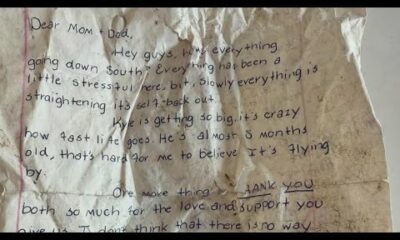 Dear Mom + Dad,
Hey guys, how's everything
going down South? Everything has been a
little stressful here, but, slowly everything is
straightening it's self back out.
Kye is getting so big, it's crazy
how fast life goes. He's almost 5 months
old, that's hard for me to believe It's flying
by.
One more thing - THANK YOU
both so much for the love and support you
give us I don't think that there is no way